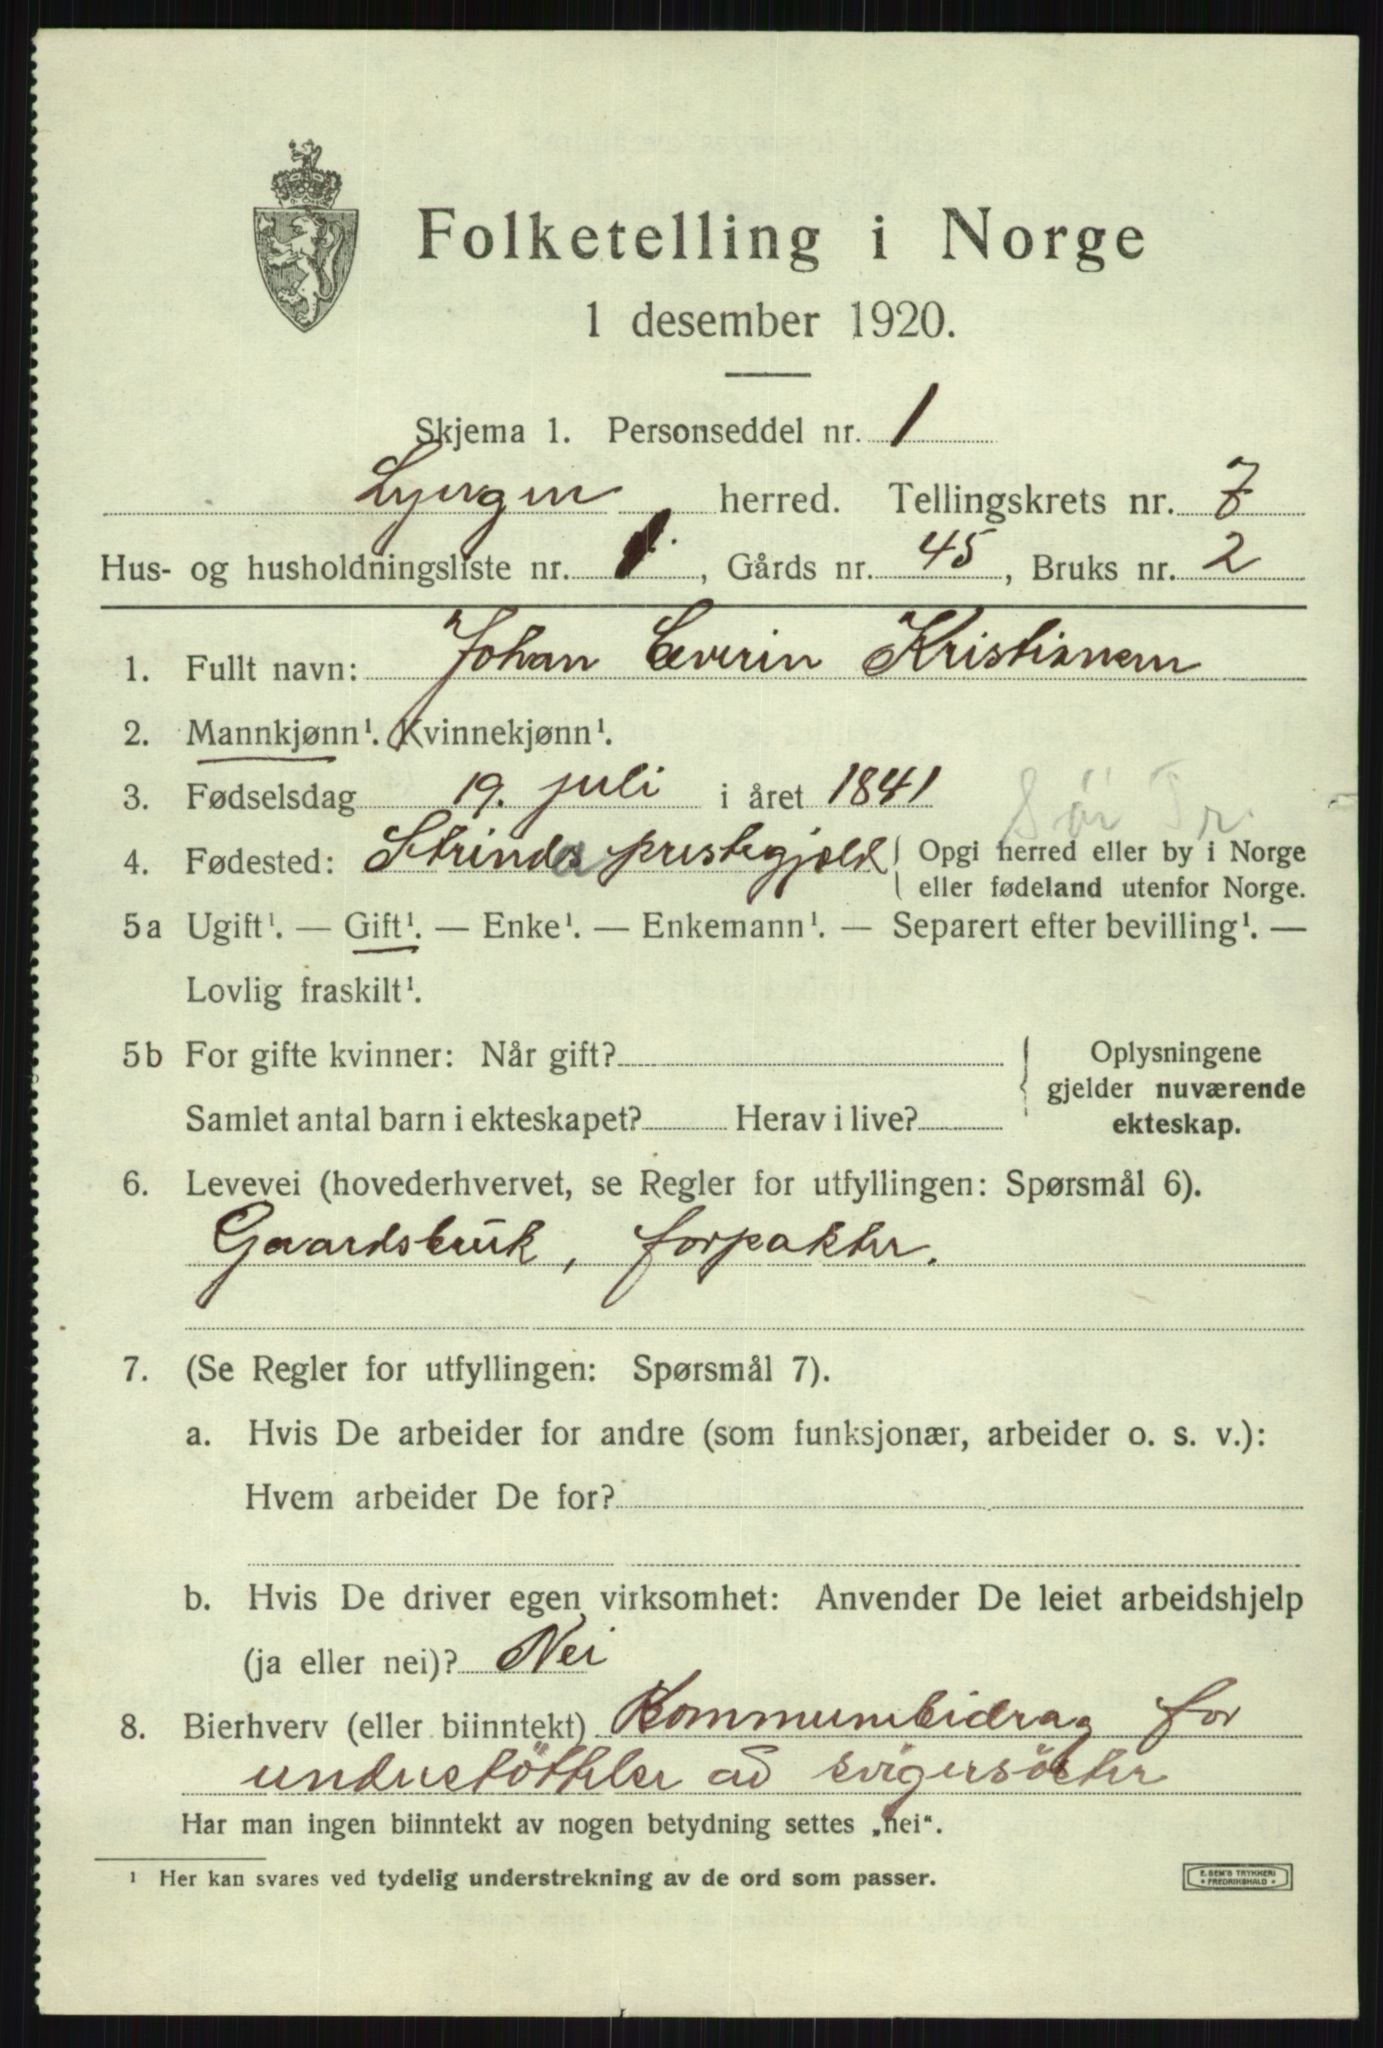 Folketelling i Norge
1 desember 1920.
Skjema 1. Personseddel nr. 1
Lyngen herred. Tellingskrets nr. 7
Hus- og husholdningsliste nr. 1, Gårds nr. 45, Bruks nr. 2
1. Fullt navn: Johan Everin Kristiansen
2. Mannkjønn¹. Kvinnekjønn¹.
3. Fødselsdag 19. juli i året 1841
Sör Tr.
4. Fødested: Strinda prestegjeld Opgi herred eller by i Norge
eller fødeland utenfor Norge.
5a Ugift¹. — Gift¹. — Enke¹. — Enkemann¹. — Separert efter bevilling¹. —
Lovlig fraskilt¹.
5b For gifte kvinner: Når gift?
Samlet antal barn i ekteskapet? Herav i live?
Oplysningene
gjelder nuværende
ekteskap.
6. Levevei (hovederhvervet, se Regler for utfyllingen: Spørsmål 6).
Gaardsbruk, forpakter.
7. (Se Regler for utfyllingen: Spørsmål 7).
a. Hvis De arbeider for andre (som funksjonær, arbeider o. s. v.):
Hvem arbeider De for?
b. Hvis De driver egen virksomhet: Anvender De leiet arbeidshjelp
(ja eller nei)? Nei
8. Bierhverv (eller biinntekt) Kommunebidrag for
understöttelse av svigersöster
Har man ingen biinntekt av nogen betydning settes „nei“.
¹ Her kan svares ved tydelig understrekning av de ord som passer.
E. SEM'S TRYKKERI
• FREDRIKSHALD •